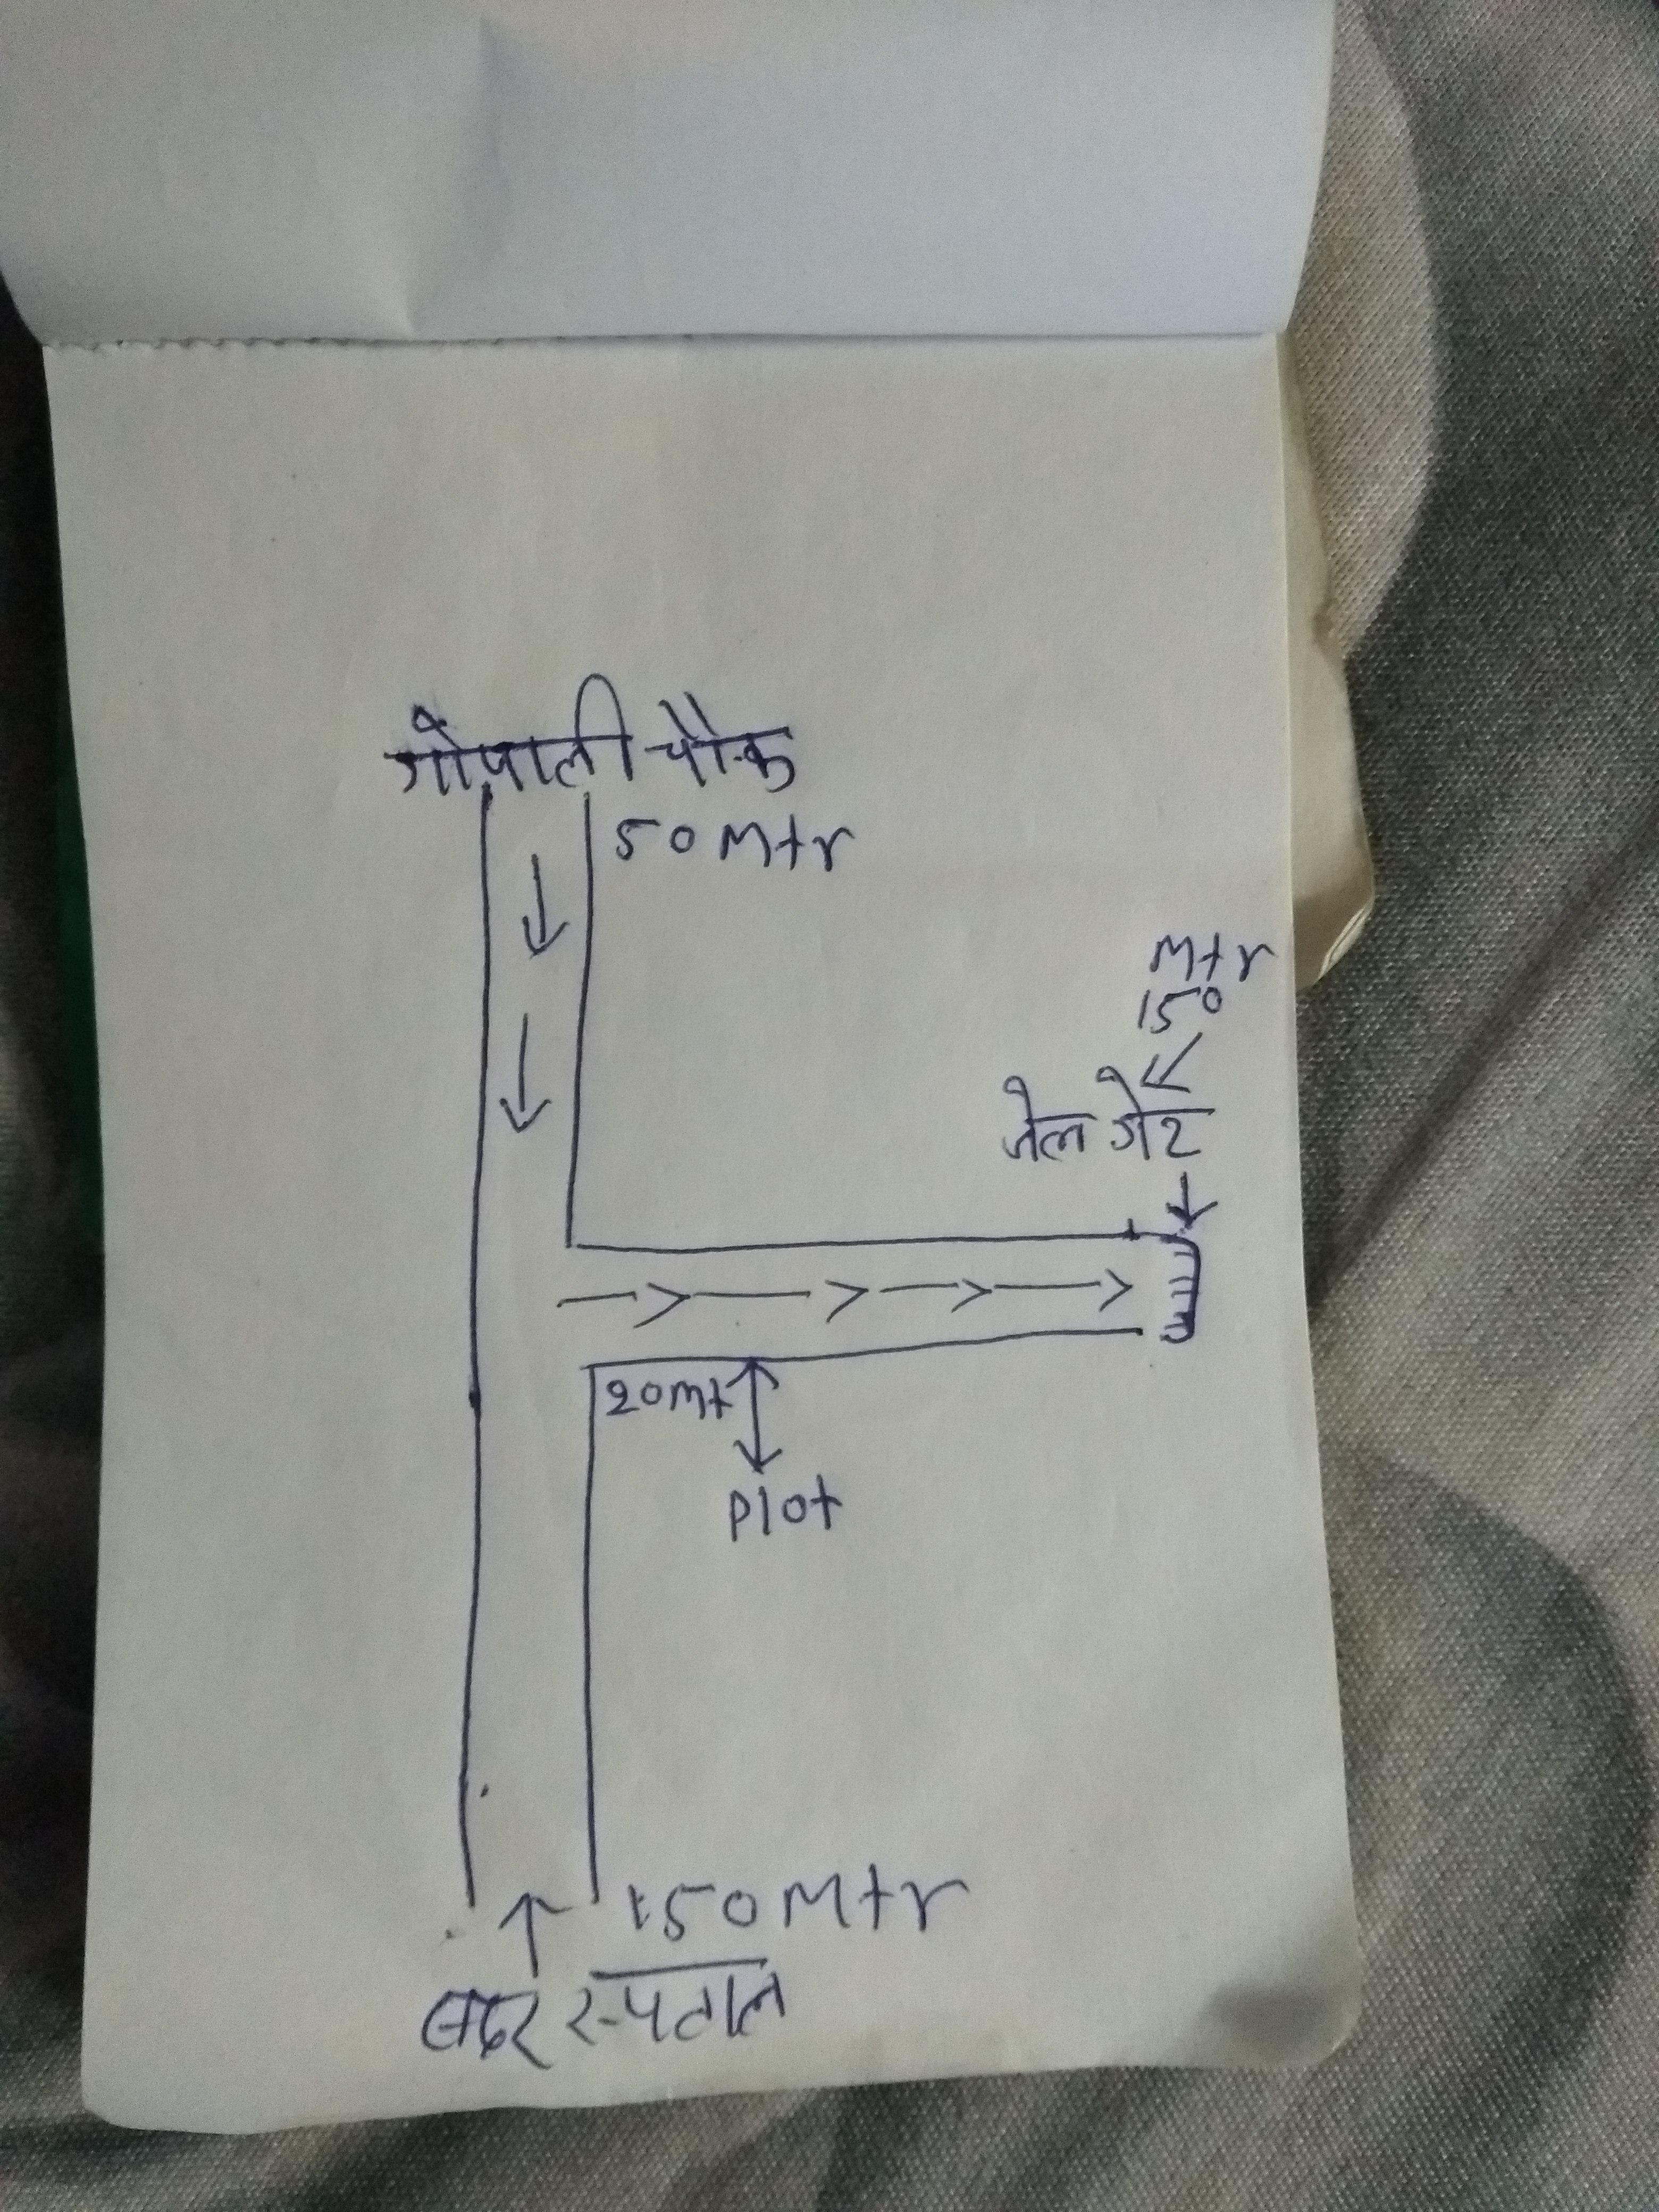 गोपाली चौक
50 Mtr
Mtr
150
जेल गेट
20mt
Plot
150 Mtr
सदर स्पताल